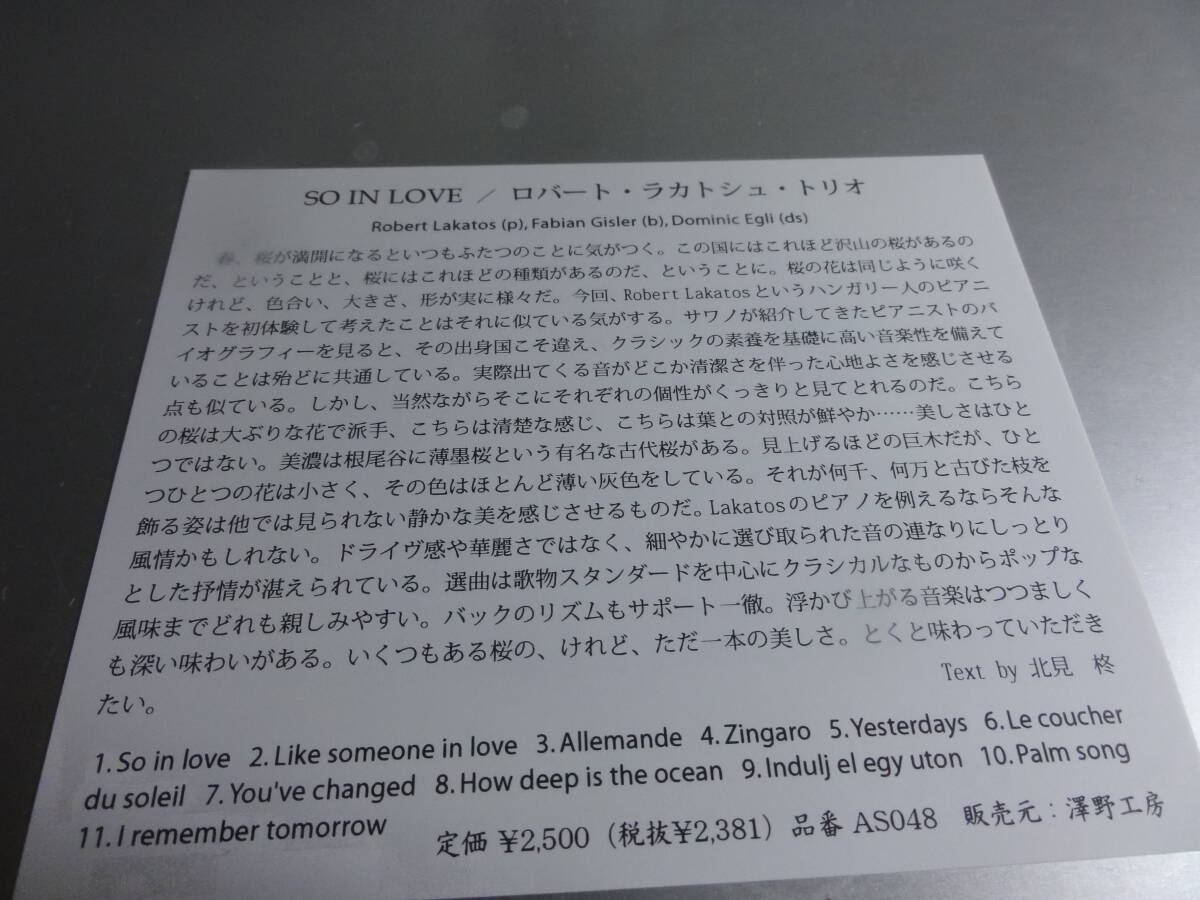 SO IN LOVE / ロバート・ラカトシュ・トリオ
Robert Lakatos (p), Fabian Gisler (b), Dominic Egli (ds)
春、桜が満開になるといつもふたつのことに気がつく。この国にはこれほど沢山の桜があるの
だ、ということと、桜にはこれほどの種類があるのだ、ということに。桜の花は同じように咲く
けれど、色合い、大きさ、形が実に様々だ。今回、Robert Lakatosというハンガリー人のピアニ
ストを初体験して考えたことはそれに似ている気がする。サワノが紹介してきたピアニストのバ
イオグラフィーを見ると、その出身国こそ違え、クラシックの素養を基礎に高い音楽性を備えて
いることは殆どに共通している。実際出てくる音がどこか清潔さを伴った心地よさを感じさせる
点も似ている。しかし、当然ながらそこにそれぞれの個性がくっきりと見てとれるのだ。こちら
の桜は大ぶりな花で派手、こちらは清楚な感じ、こちらは葉との対照が鮮やか……美しさはひと
つではない。美濃は根尾谷に薄墨桜という有名な古代桜がある。見上げるほどの巨木だが、ひと
つひとつの花は小さく、その色はほとんど薄い灰色をしている。それが何千、何万と古びた枝を
飾る姿は他では見られない静かな美を感じさせるものだ。Lakatosのピアノを例えるならそんな
風情かもしれない。ドライヴ感や華麗さではなく、細やかに選び取られた音の連なりにしっとり
とした抒情が湛えられている。選曲は歌物スタンダードを中心にクラシカルなものからポップな
風味までどれも親しみやすい。バックのリズムもサポート一徹。浮かび上がる音楽はつつましく
も深い味わいがある。いくつもある桜の、けれど、ただ一本の美しさ。とくと味わっていただき
たい。
Text by 北見 柊
1.So in love 2.Like someone in love 3.Allemande 4.Zingaro 5.Yesterdays 6.Le coucher
du soleil 7.You've changed 8.How deep is the ocean 9.Indulj el egy uton 10.Palm song
11.I remember tomorrow
定価 ¥2,500（税抜¥2,381）品番 AS048 販売元：澤野工房